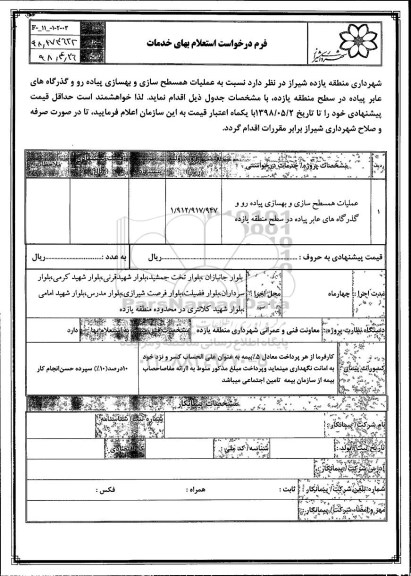 F۰-۱۱-۰۱-۲۰۰۳
۹۸,۱۷۴۶۲۲
۹۸,۴,۲۶
فرم درخواست استعلام بهای خدمات
شهرداری منطقه یازده شیراز در نظر دارد نسبت به عملیات همسطح سازی و بهسازی پیاده رو و گذرگاه های
عابر پیاده در سطح منطقه یازده، با مشخصات جدول ذیل اقدام نماید. لذا خواهشمند است حداقل قیمت
پیشنهادی خود را تا تاریخ ۱۳۹۸/۰۵/۲ با یکماه اعتبار قیمت به این سازمان اعلام فرمایید، تا در صورت صرفه
و صلاح شهرداری شیراز برابر مقررات اقدام گردد.
مشخصات پروژه/ خدمات درخواستی
۱
عملیات همسطح سازی و بهسازی پیاده رو و
گذرگاه های عابر پیاده در سطح منطقه یازده
۱/۹۱۲/۹۱۷/۹۴۷
قیمت پیشنهادی به حروف : ریال
به عدد : ریال
مدت اجرا : چهارماه
محل اجرا :
بلوار جانبازان ،بلوار تخت جمشید،بلوار شهیدقرنی،بلوار شهید کرمی،بلوار
سرداران،بلوار فضیلت،بلوار فرصت شیرازی،بلوار مدرس،بلوار شهید امامی
،بلوار شهید کلانتری در محدوده منطقه یازده
دستگاه نظارت پروژه: معاونت فنی و عمرانی شهرداری منطقه یازده
دارد
کسورات پیمان :
کارفرما از هر پرداخت معادل ۵٪بیمه به عنوان علی الحساب کسر و نزد خود
به امانت نگهداری مینماید وپرداخت مبلغ مذکور منوط به ارائه مفاصاحساب
بیمه از سازمان بیمه تامین اجتماعی میباشد
۱۰درصد(۱۰٪) سپرده حسن انجام کار
مشخصات پیمانکار
نام شرکت/ پیمانکار :
شماره ثبت/ شناسنامه :
تاریخ ثبت/ تولد :
شناسه/ کد ملی :
آدرس شرکت/ پیمانکار :
شماره تلفن شرکت/ پیمانکار :
ثابت :
همراه :
فکس :
مهر و امضاء شرکت/ پیمانکار :